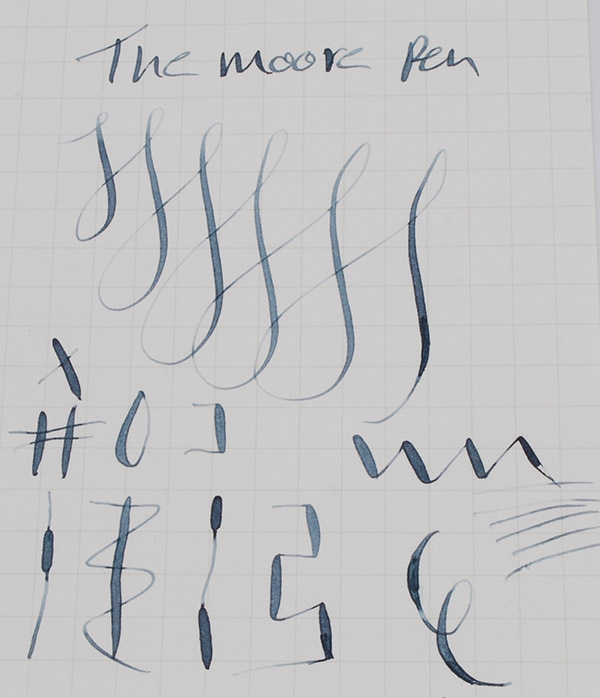 The moore Pen